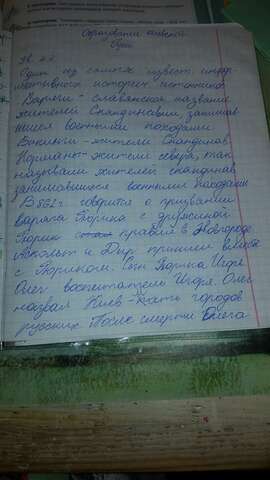 Образование киевской
Руси
Один из самых извест. инфор
мативных историч. источников
Варяги - славянское название
жителей Скандинавии занимав
шиеся военными походами
Викинги - жители Скандинав.
Норманы - жители севера, так
называли жителей скандинав
занимавшиеся военными походами
В 862 г. говорится о призвании
варяга Рюрика с дружиной
Рюрик правил в Новгороде
Аскольт и Дир пришли вместе
с Рюриком. Сын Рюрика Игорь
Олег воспитатель Игоря. Олег
назвал Киев - мать городов
русских После смерти Олега